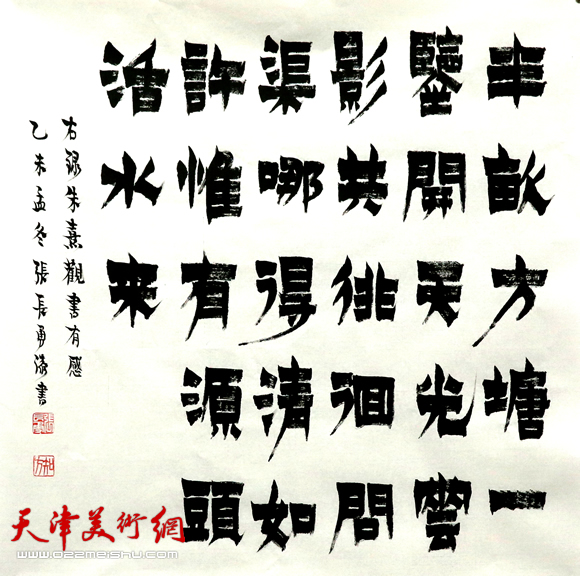 半畝方塘一
鑒開天光雲
影共徘徊問
渠哪得清如
許惟有源頭
活水来
右録朱熹觀書有感
乙未孟冬張長勇書
天津美術網
www.022meishu.com